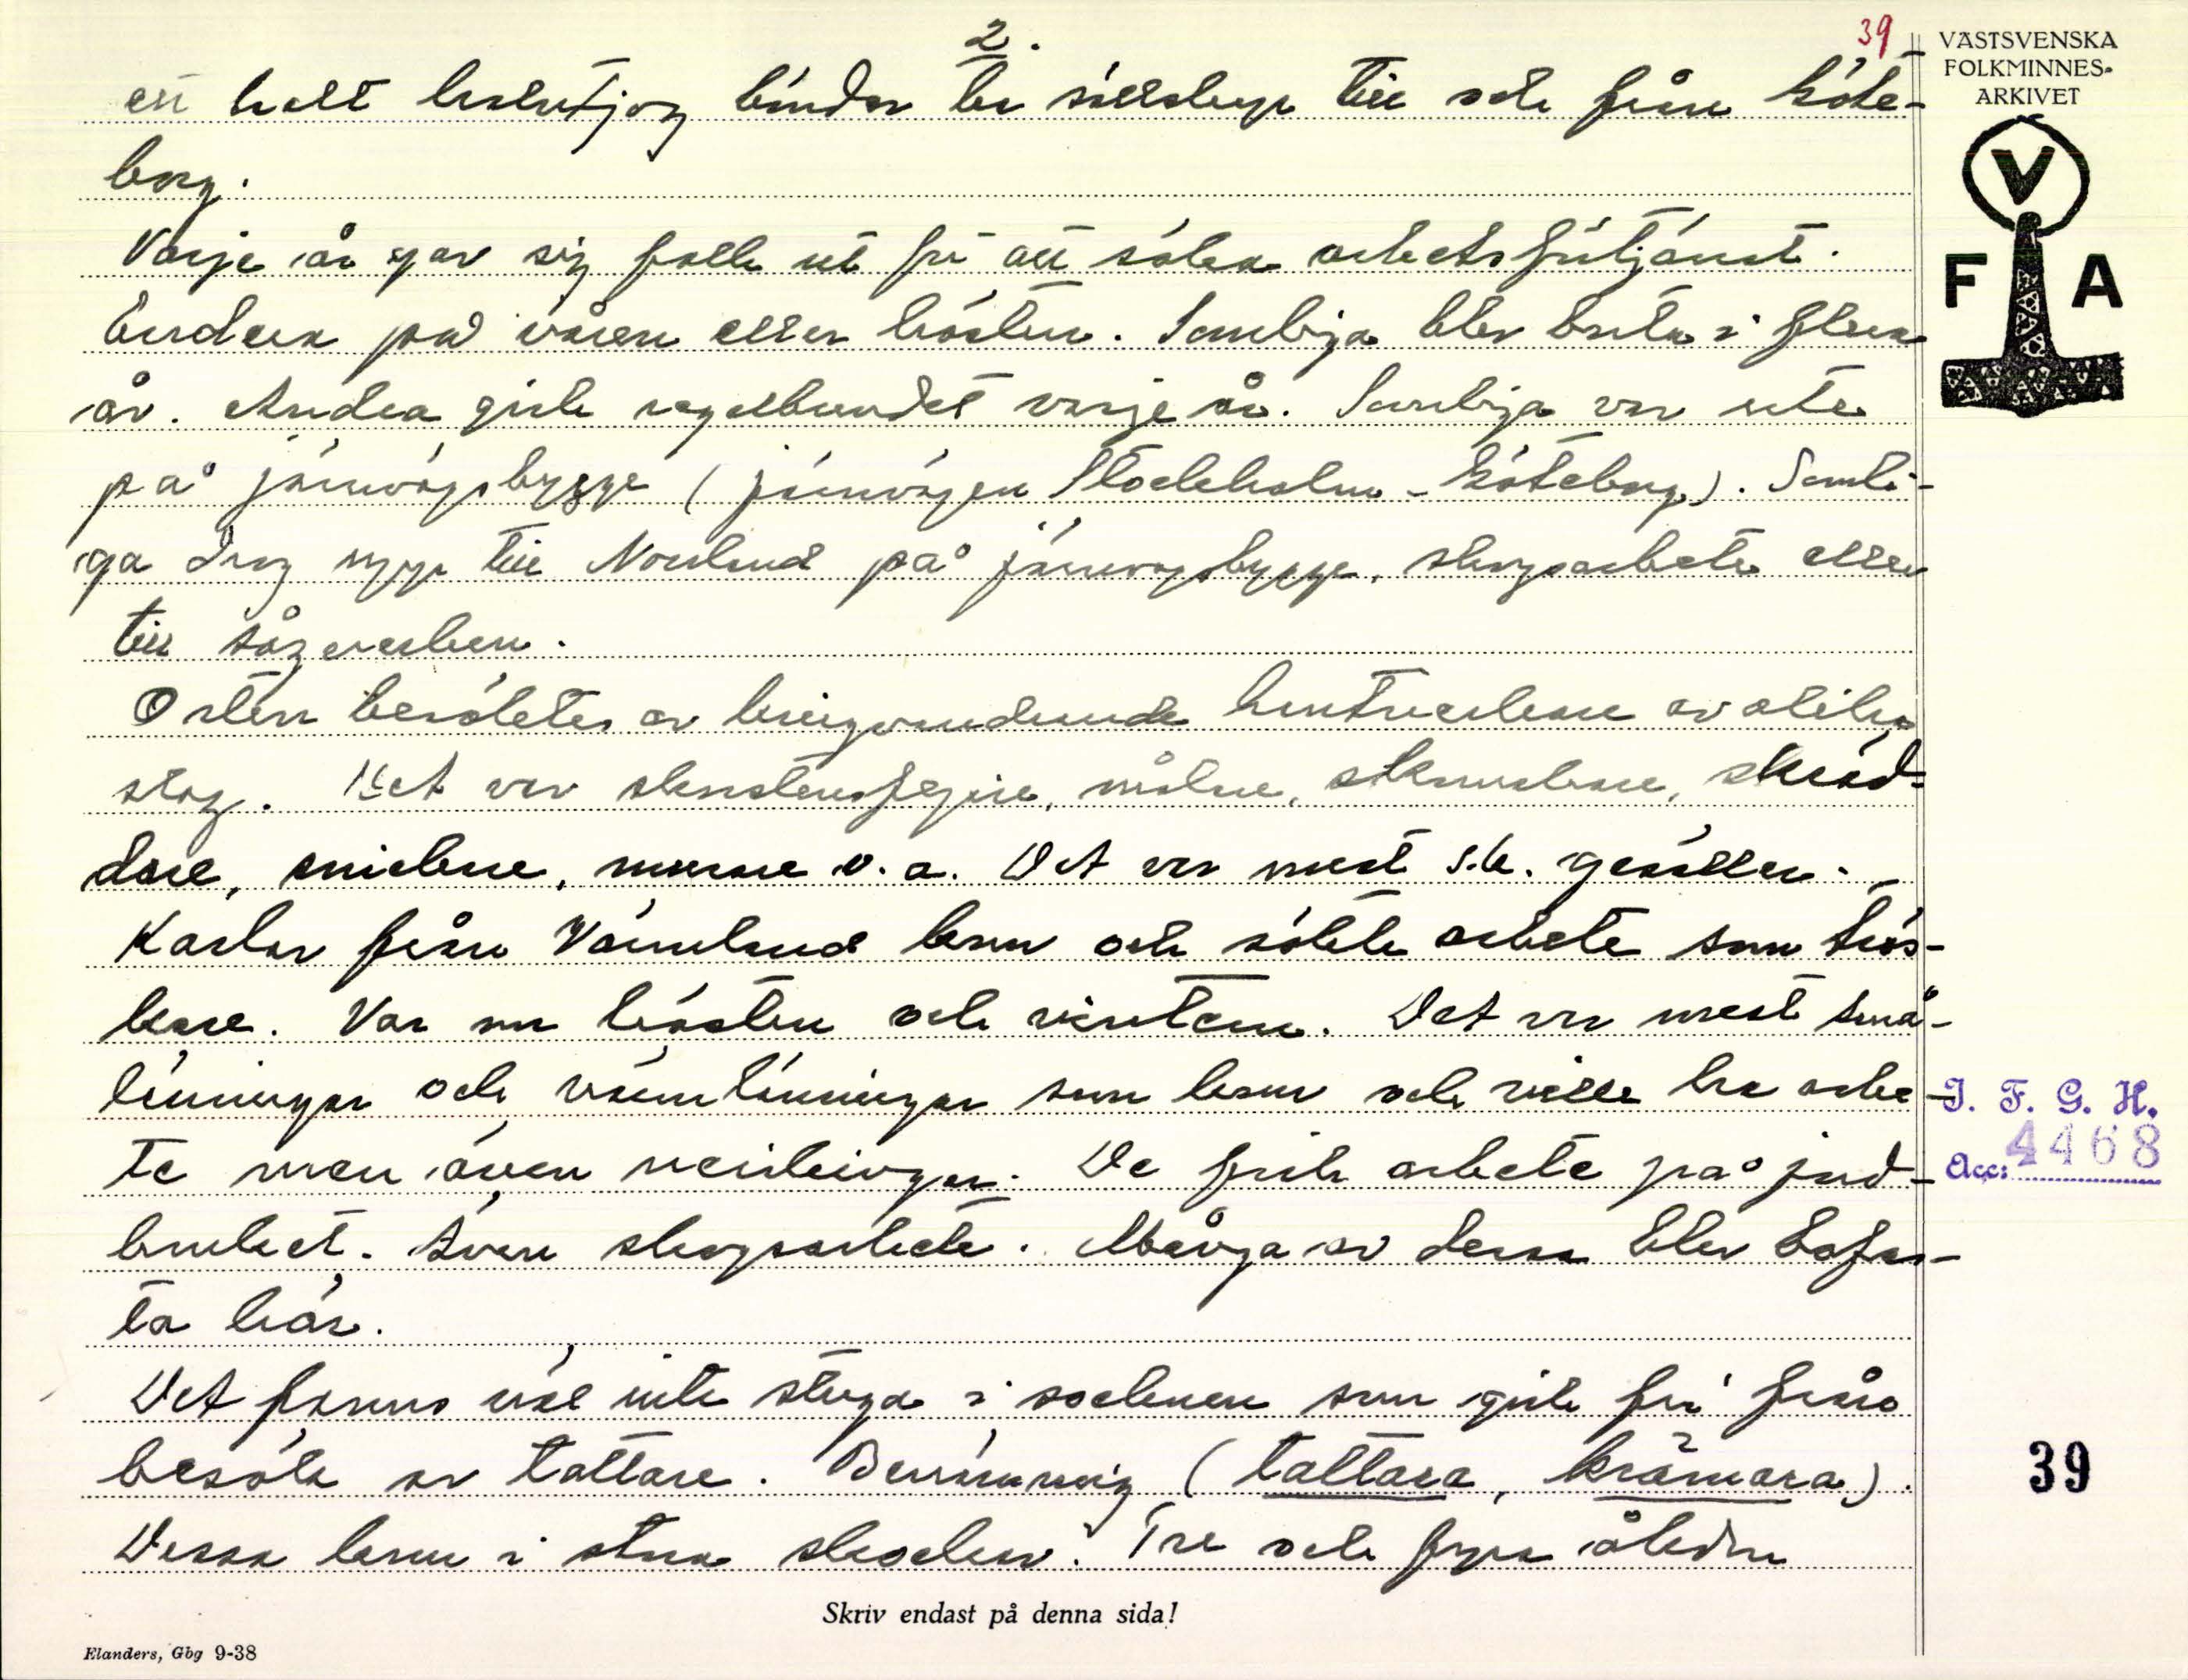 2.
39
ett helt halvtjog bönder ha sällskap till och från Göte-
borg.
Varje år gav sig folk ut för att söka arbetsförtjänst.
Endera på våren eller hösten. Somliga blev borta i flera
år. Andra gick regelbundet varje år. Somliga var ute
på järnvägsbygge (järnvägen Stockholm - Göteborg). Somli-
ga drog upp till Norrland på järnvägsbygge, skogsarbete eller
till sågverken.
Orten besöktes av kringvandrande hantverkare av olika
slag. Det var skorstensfejare, målare, skomakare, skräd-
dare, snickare, murare o.a. Det var mest s.k. gesäller.
Karlar från Värmland kom och sökte arbete som trös-
kare. Var om hösten och vintern. Det var mest små-
länningar och värmlänningar som kom och ville ha arbe-
te men även nerikingar. De fick arbete på jord-
bruket. Även skogsarbete. Många av dessa blev bofas-
ta här.
Det fanns väl inte stuga i socknen som gick fri från
besök av tattare. Benämning (tattara, krämara).
Dessa kom i stora skockar. Tre och fyra åkdon
Skriv endast på denna sida!
Elanders, Gbg 9-38
VÄSTSVENSKA
FOLKMINNES-
ARKIVET
V
F A
I. F. G. H.
Acc: 4468
39